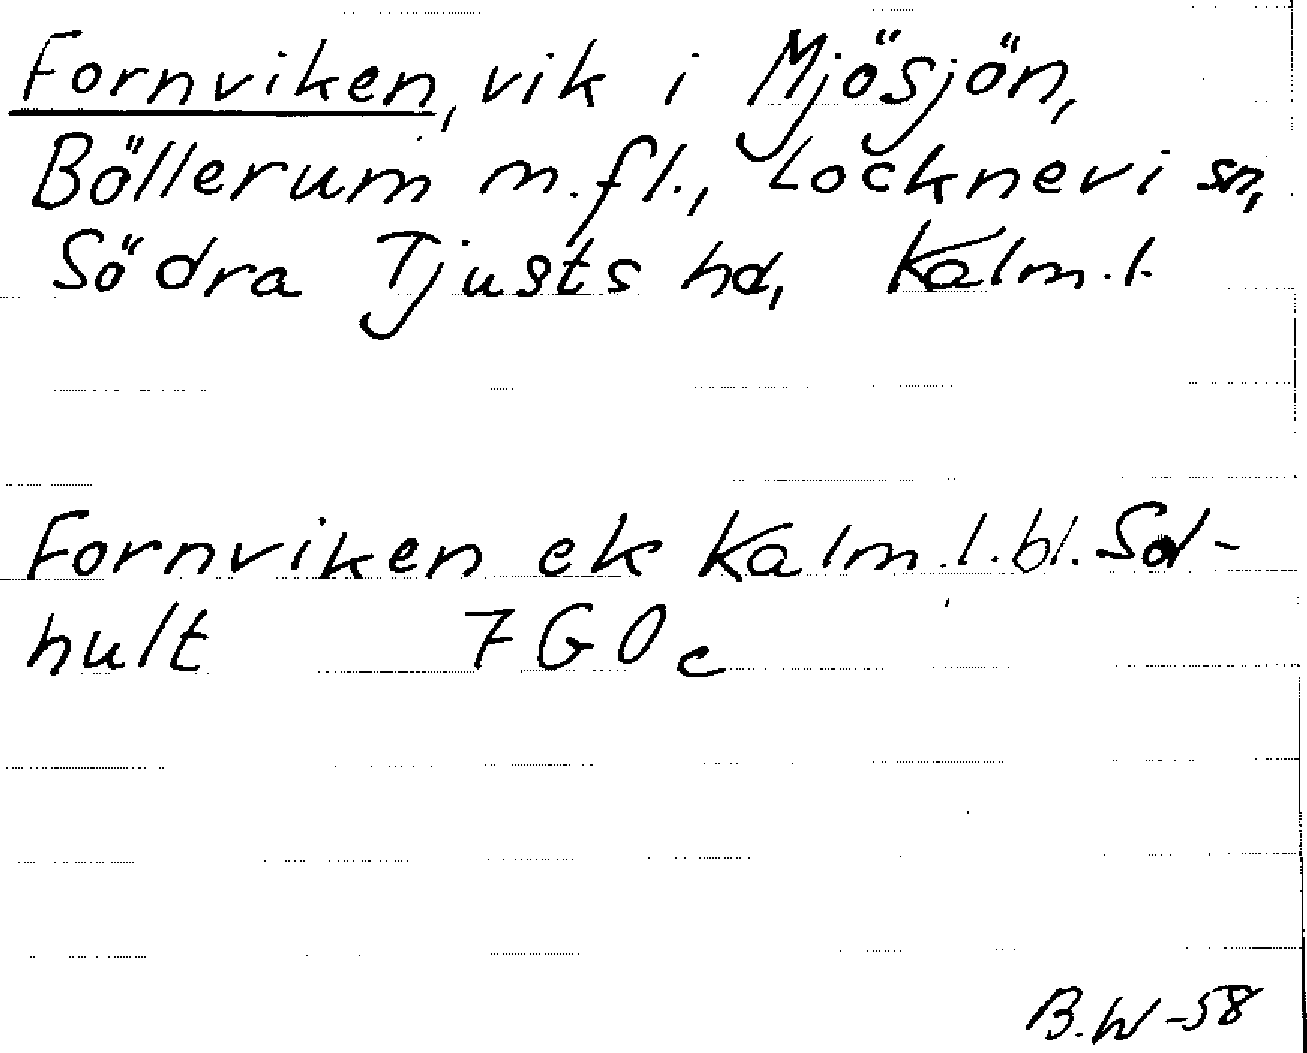 Fornviken, vik i Mjösjön,
Böllerum m.fl., Locknevi sn,
Södra Tjusts hd, Kalm.l.
Fornviken ek Kalm.l.bl. Sol-
hult 7 G 0 c
B.W-58